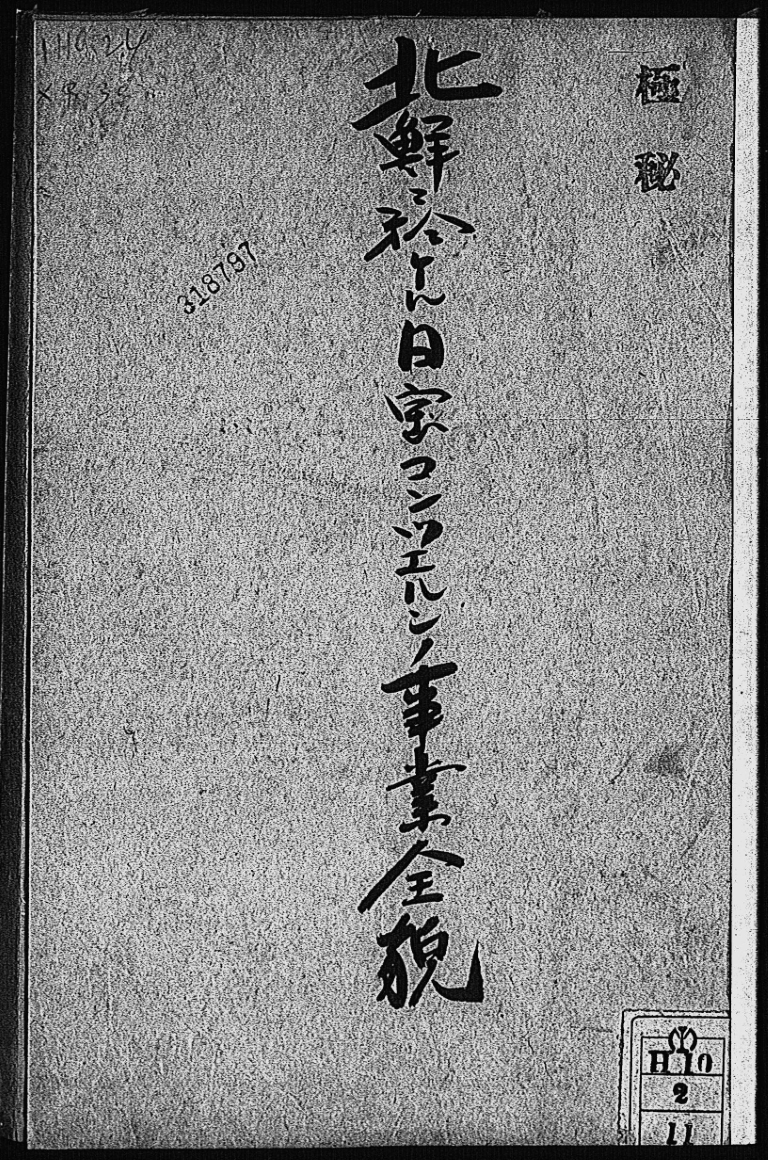 極秘
北鮮ニ於ケル日窒コンツエルンノ事業全貌
318797
H10
2
11